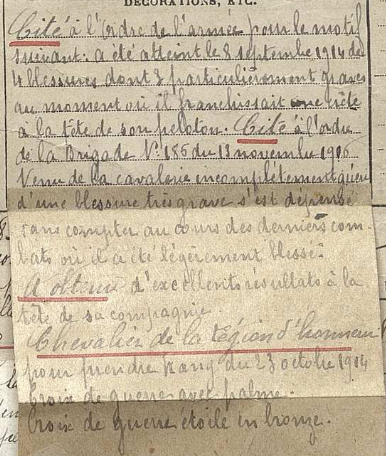 DÉCORATIONS, ETC.
Cité à l'Ordre de l'armée pour le motif
suivant: a été atteint le 8 septembre 1914 de
4 blessures dont 3 particulièrement graves
au moment où il franchissait une crête
à la tête de son peloton. Cité à l'ordre
de la Brigade N° 186 du 13 novembre 1916
Venu de la cavalerie incomplètement guéri
d'une blessure très grave s'est dépensé
sans compter au cours des derniers com-
bats où il a été légèrement blessé:
A obtenu d'excellents résultats à la
tête de sa compagnie.
Chevalier de la Légion d'honneur
pour prendre rang du 23 octobre 1914
Croix de guerre avec palme.
Croix de guerre étoile en bronze.